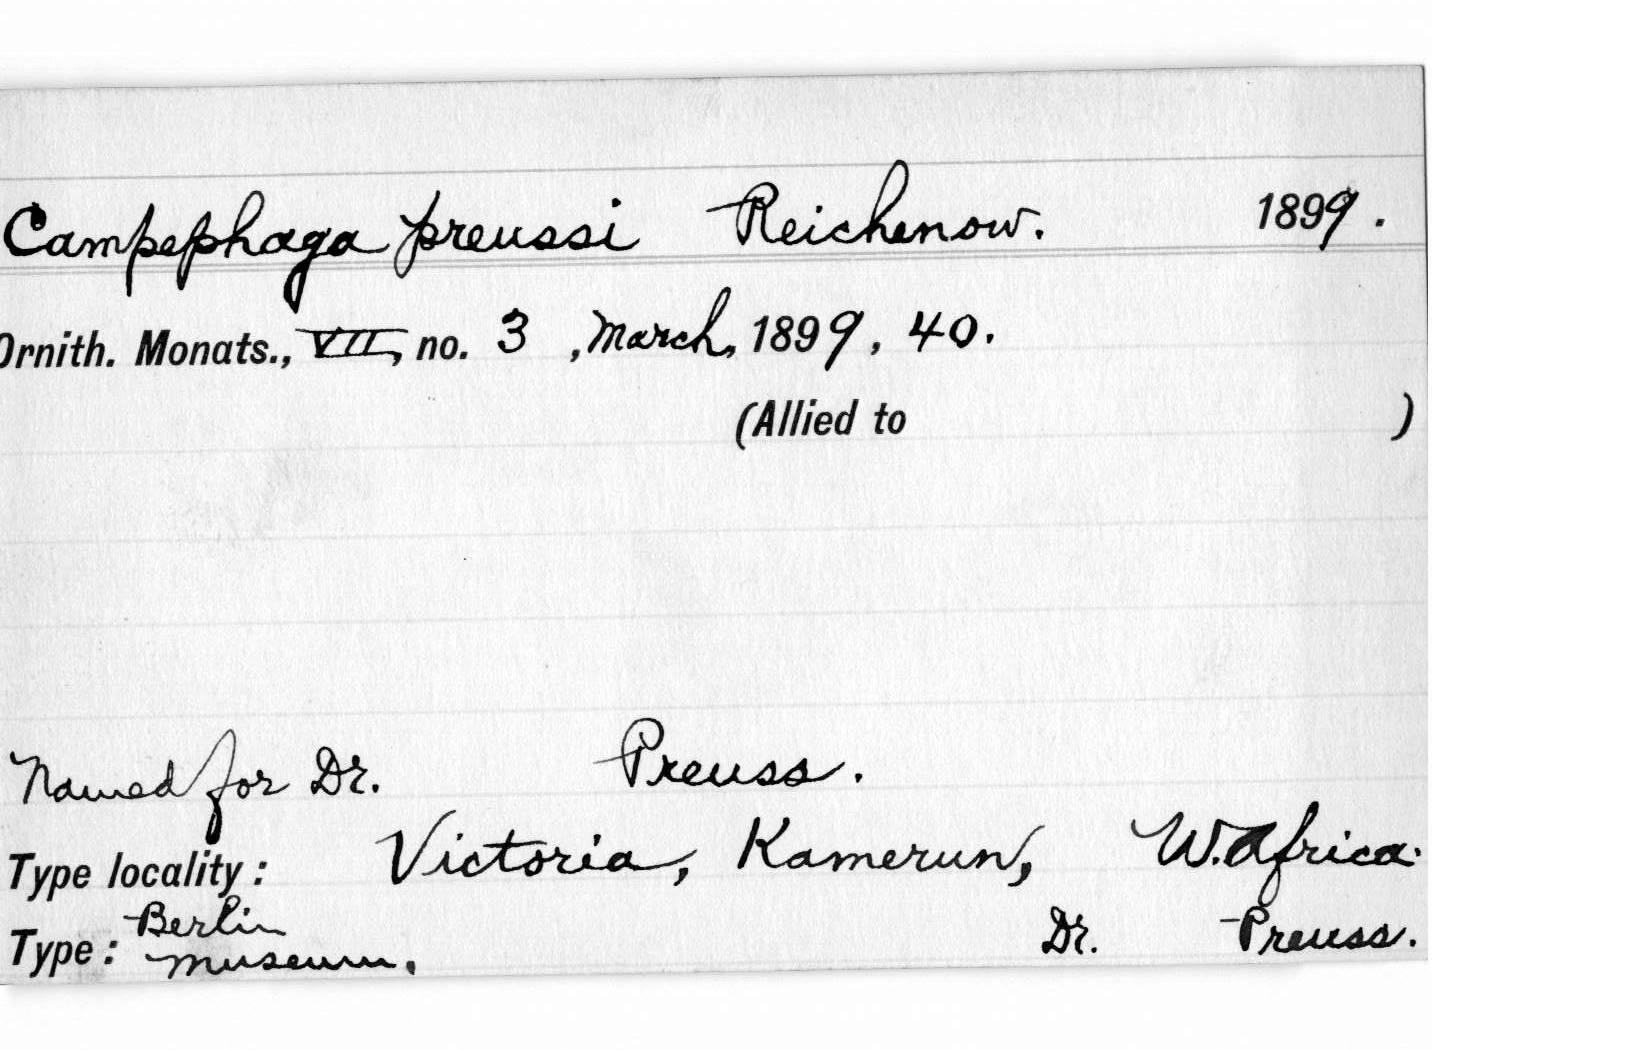 Campephaga preussi Reichenow. 1899.
Ornith. Monats., VII, no. 3, March, 1899, 40.
(Allied to )
Named for Dr. Preuss.
Type locality: Victoria, Kamerun, W. Africa.
Type: Berlin Museum. Dr. Preuss.